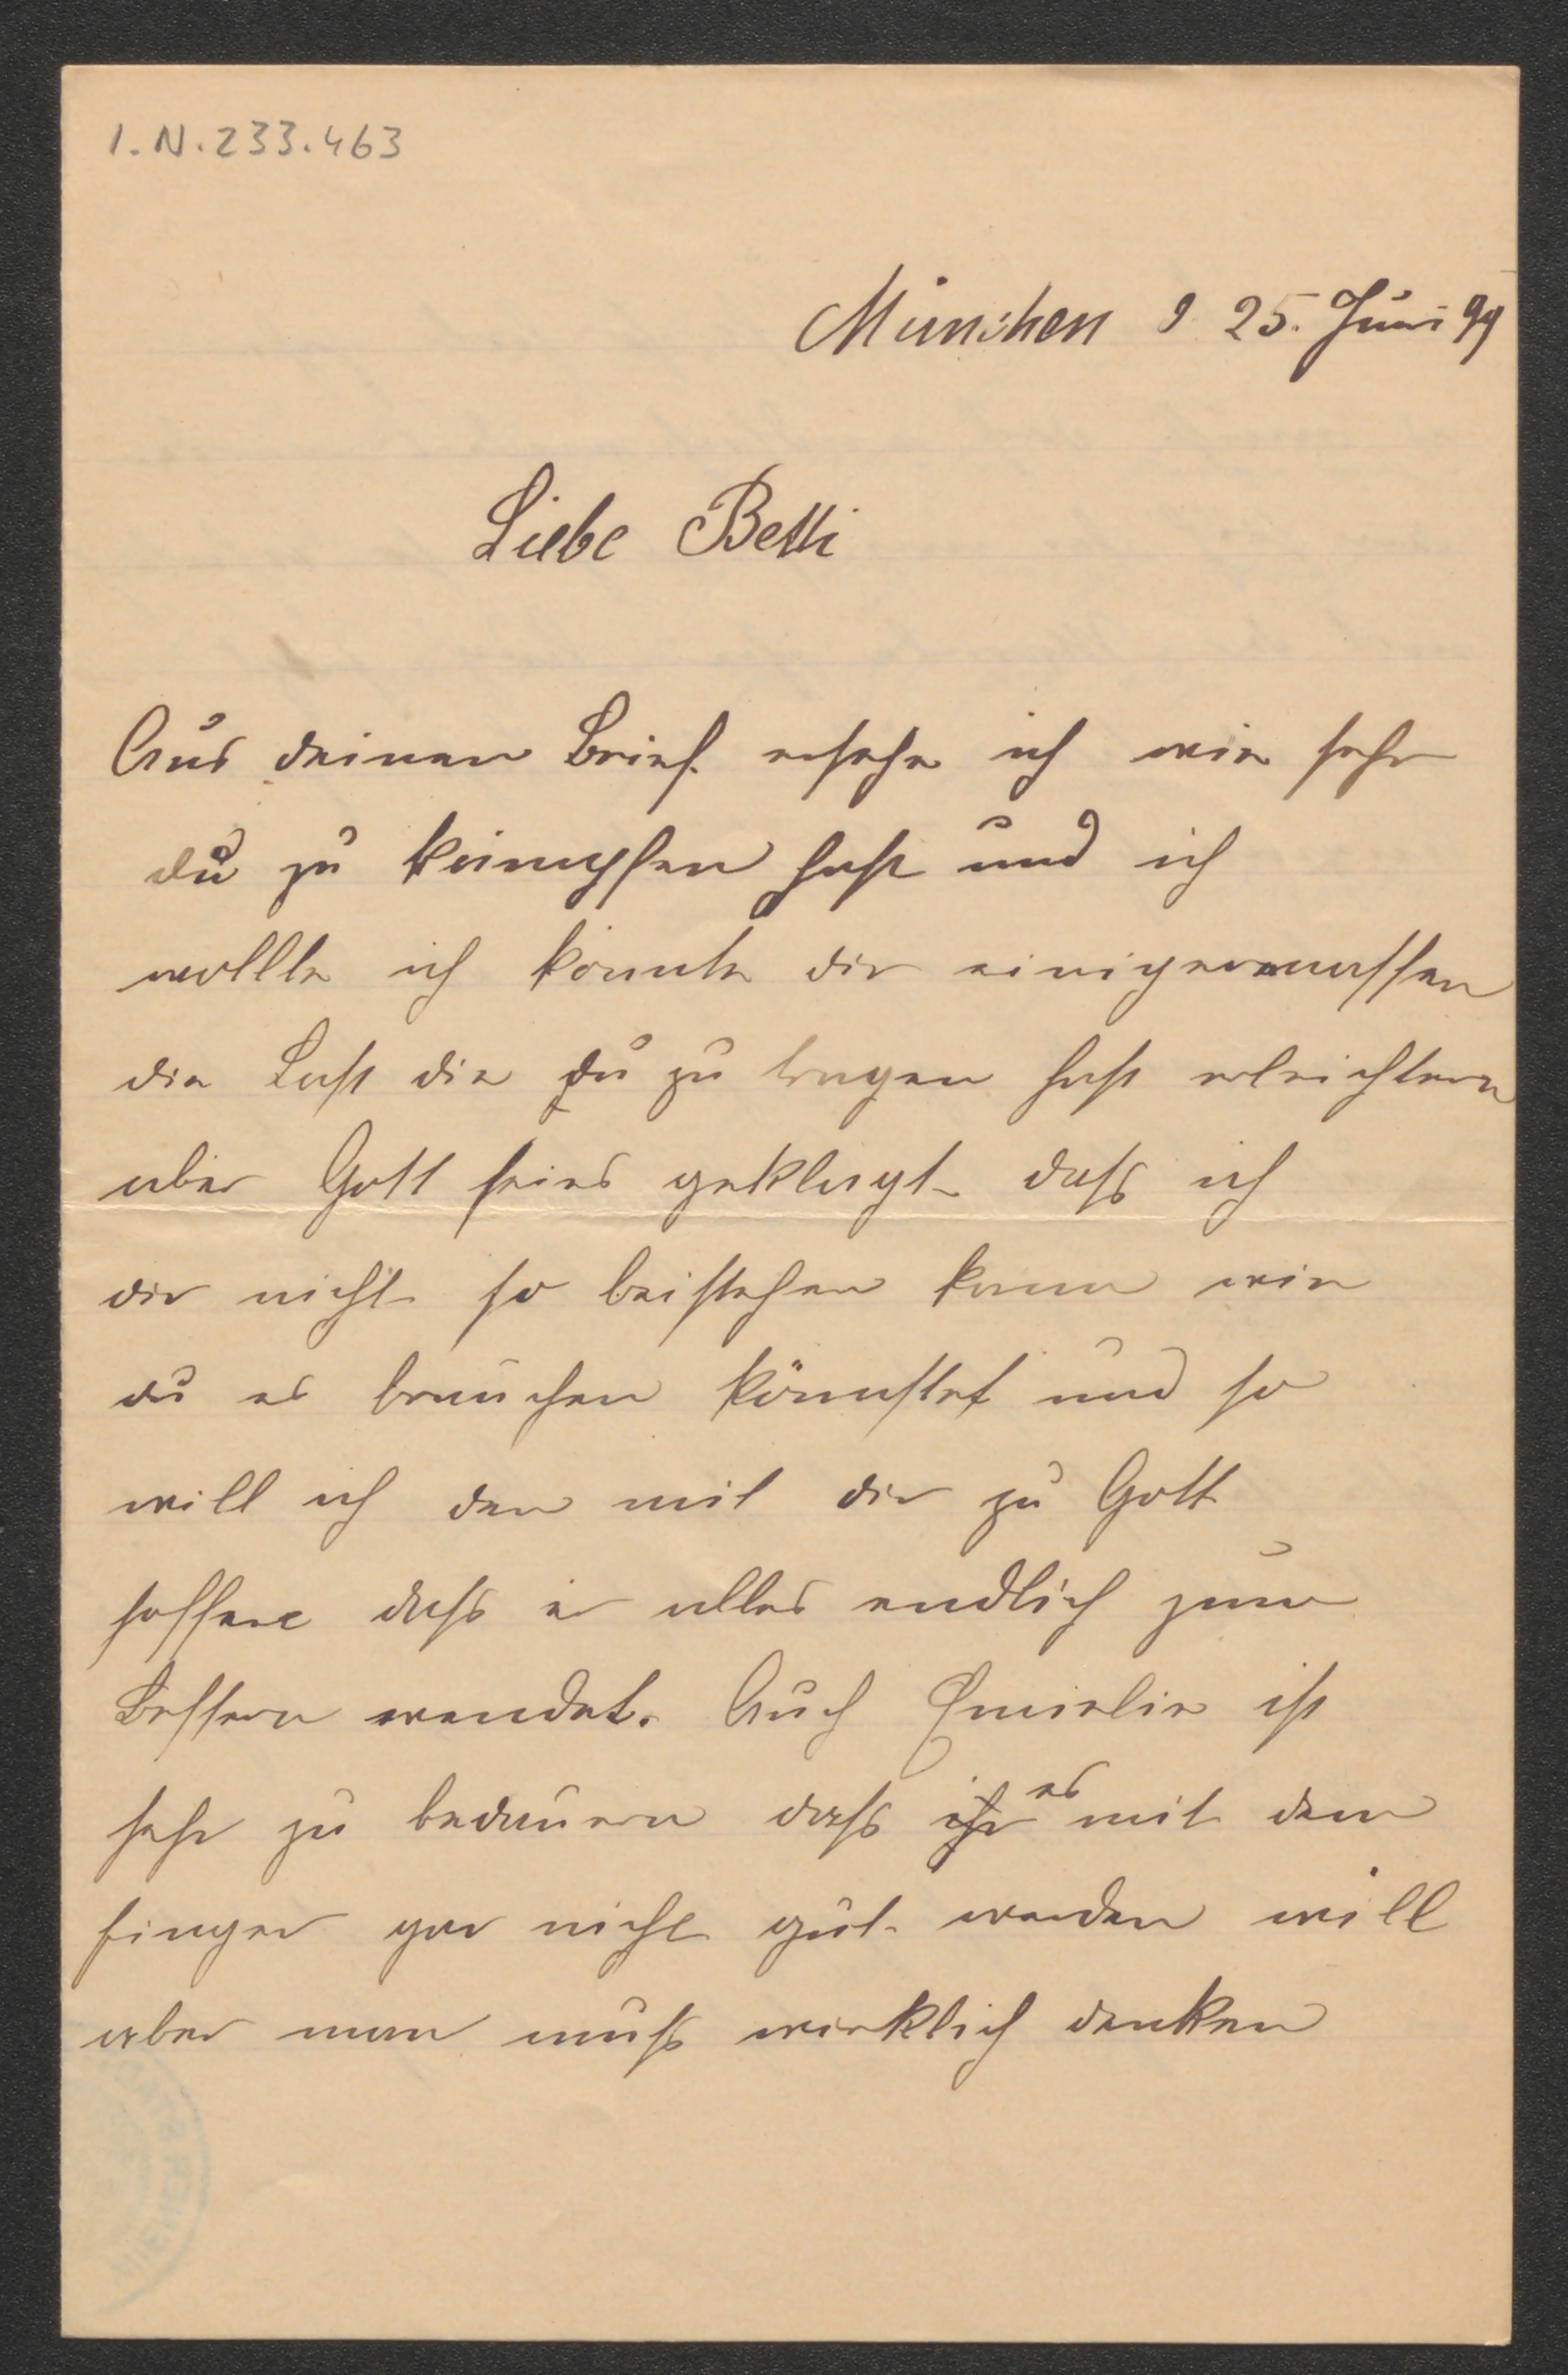 I.N.233.463
München d 25. Juni 99
Liebe Betti
Aus deinen Brief ersehe ich wie sehr
du zu kämpfen hast und ich
wollte ich könnte dir einigermassen
die Last die du zu tragen hast erleichtern
aber Gott seies geklagt dass ich
dir nicht so beistehen kann wie
du es brauchen könntest und so
will ich den mit dir zu Gott
hoffen dass er alles endlich zum
Bessern wendet. Auch Emielie ist
sehr zu bedauern dass ihr es mit dem
finger gar nicht gut werden will
aber man muss wirklich denken